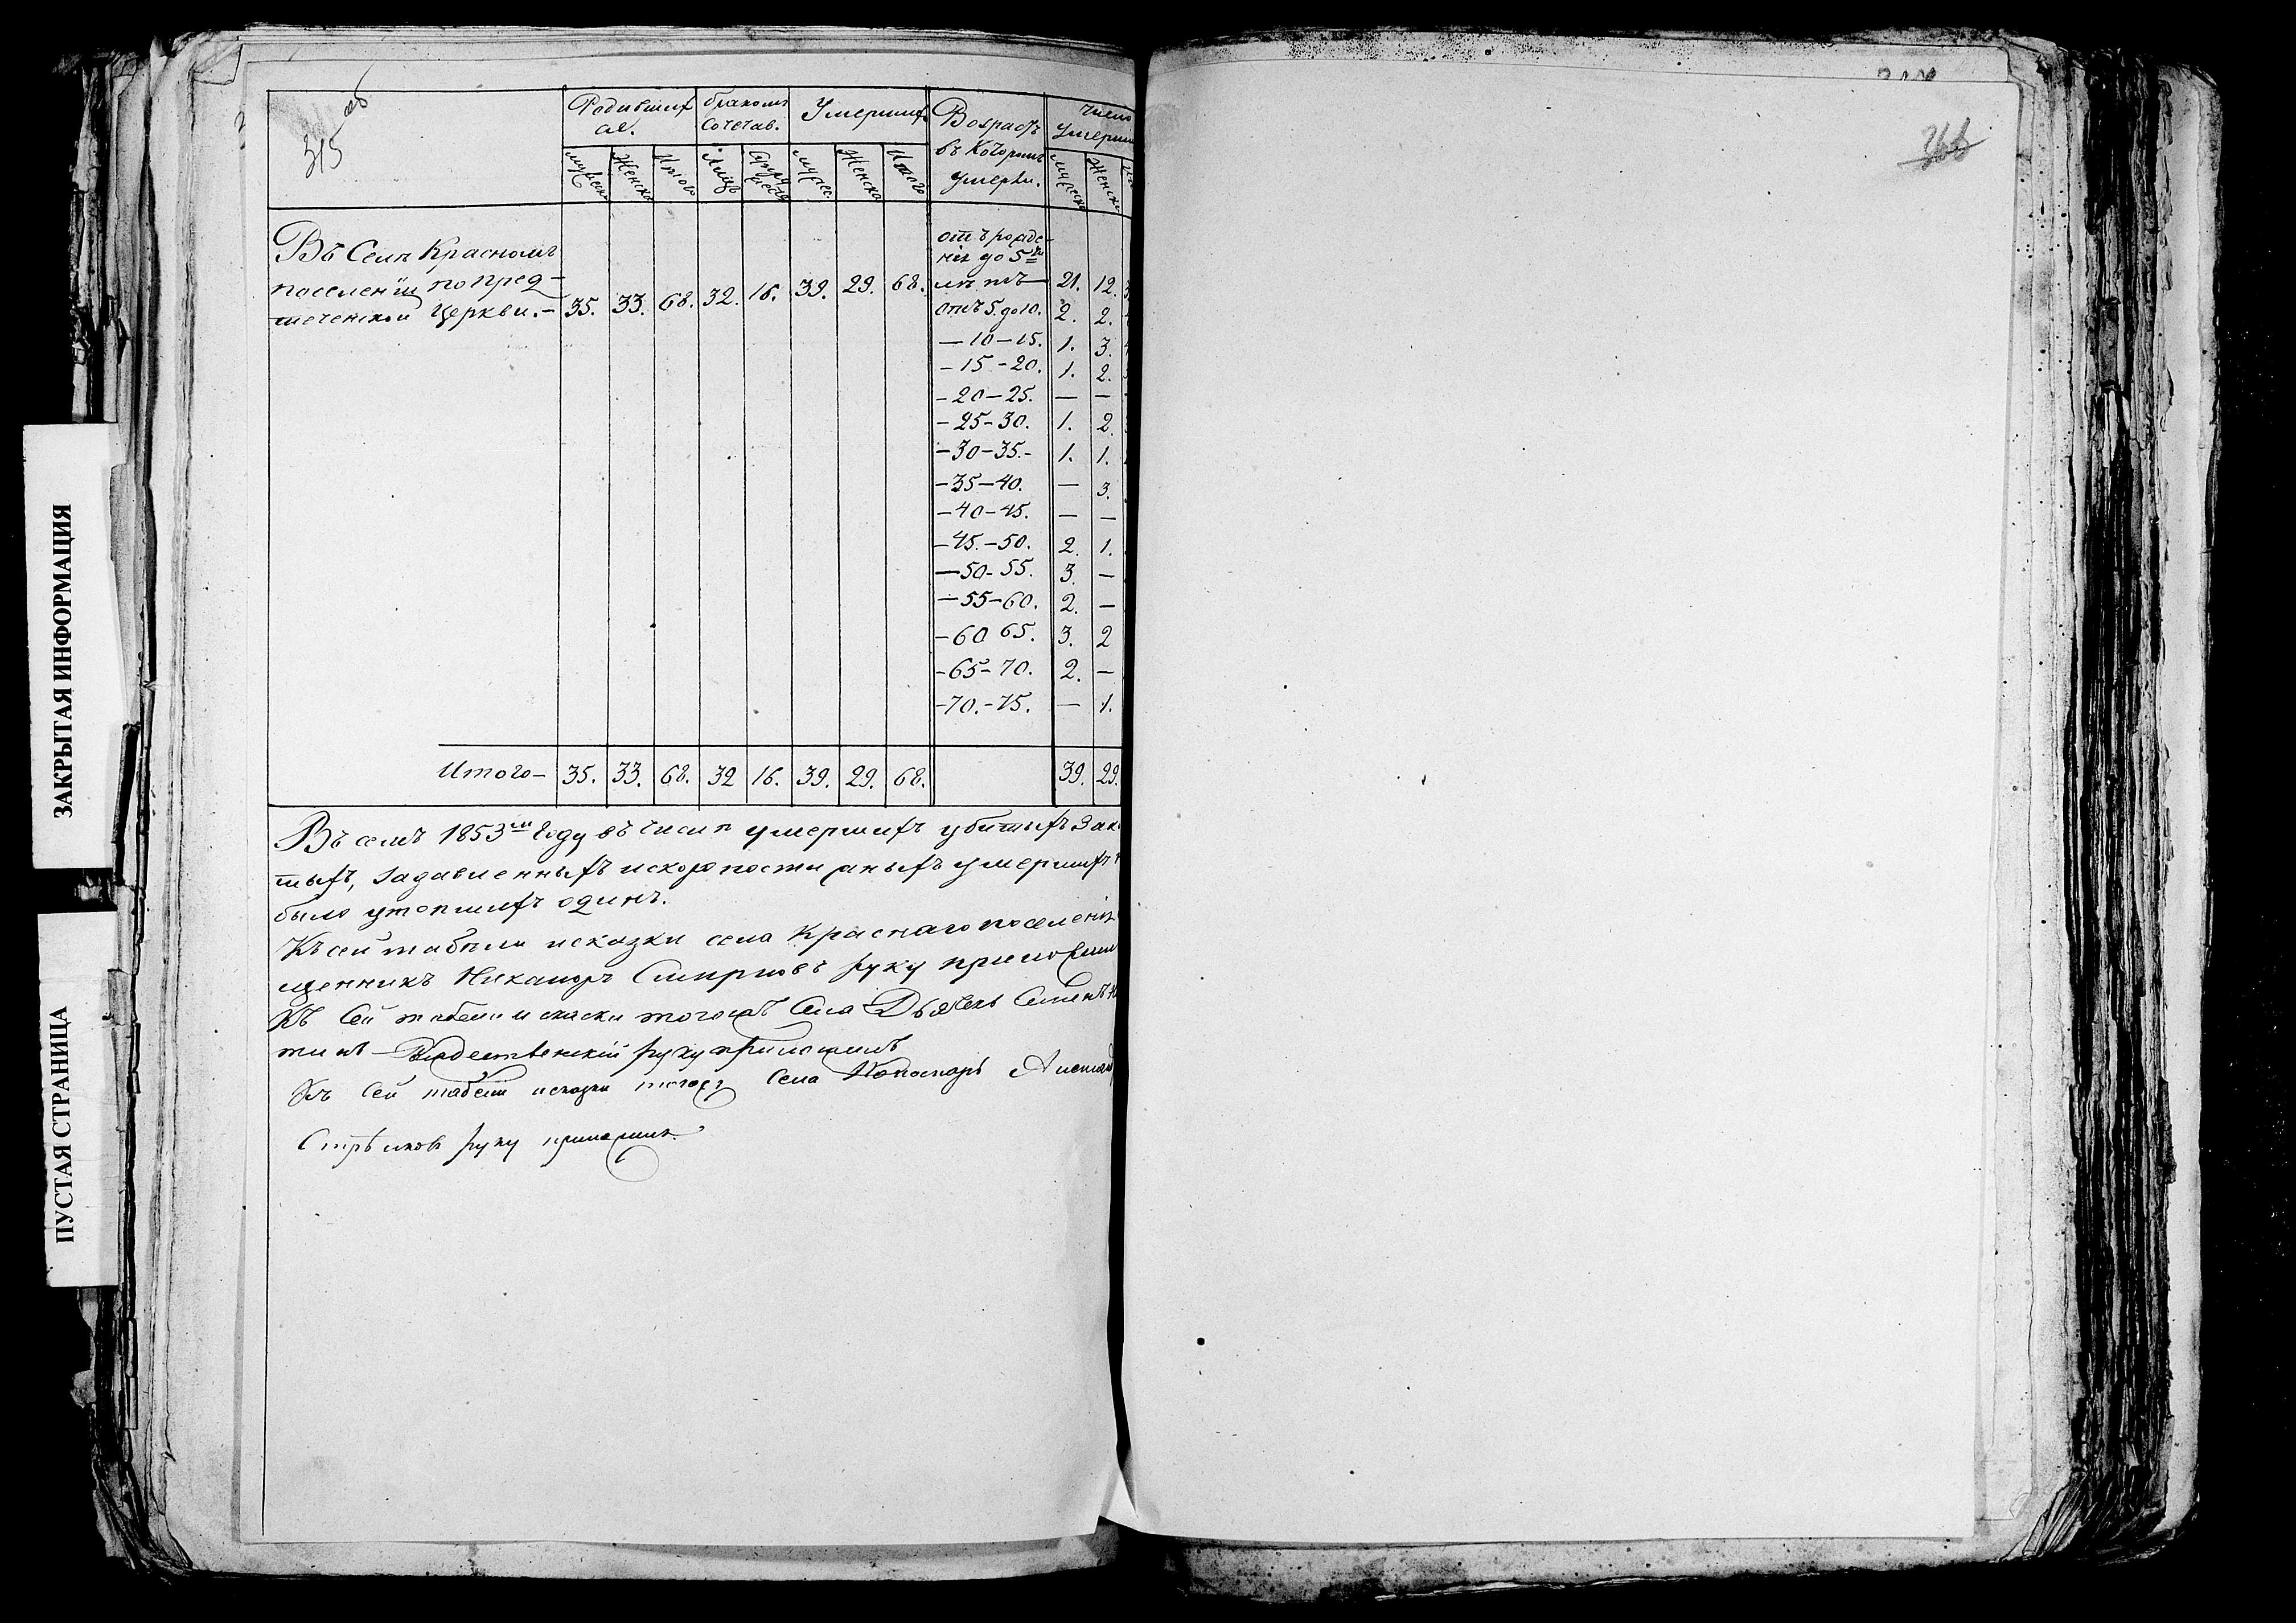 315 об
Родившихся. Бракомъ сочетав. Умершихъ Возрастъ въ которомъ умерли. Число умерши
Мужеска Женска Итого Лицъ Супружествъ Мужес. Женска Итого Мужеска Женска
Въ Селѣ Красномъ
поселенiи по Пред-
теченской Церкви.– 35. 33. 68. 32. 16. 39. 29. 68.
отъ рожде-
нiя до 5ти
лѣтъ — 21. 12.
отъ 5. до 10. 2. 2.
— 10 — 15. 1. 3.
– 15 – 20. 1. 2.
– 20 – 25. — —
– 25 – 30. 1. 2.
– 30 – 35. – 1. 1.
– 35 – 40. — 3.
– 40 – 45. — —
– 45. – 50. 2. 1.
— 50 – 55. 3. —
— 55 – 60. 2. —
– 60 65. 3. 2
– 65 – 70. 2. —
– 70. – 75. — 1.
Итого – 35. 33. 68. 32 16. 39. 29. 68. 39. 29.
Въ семъ 1853мъ Году въ числѣ умершихъ убитыхъ
тыхъ, задавленныхъ и скоропостижныхъ умершихъ
было утопшихъ одинъ.
Къ сей табѣли и сказки села Краснаго поселенiя
щенникъ Никаноръ Смирновъ руку приложил
Къ Сей табели и скаски тогожъ Села Дьячекъ Семенъ
тинъ Рождественскiй руку приложилъ
Къ Сей табели и сказки тогожъ Села Пономарь
Стрѣлковъ руку приложилъ.
366
ЗАКРЫТАЯ ИНФОРМАЦИЯ
ПУСТАЯ СТРАНИЦА